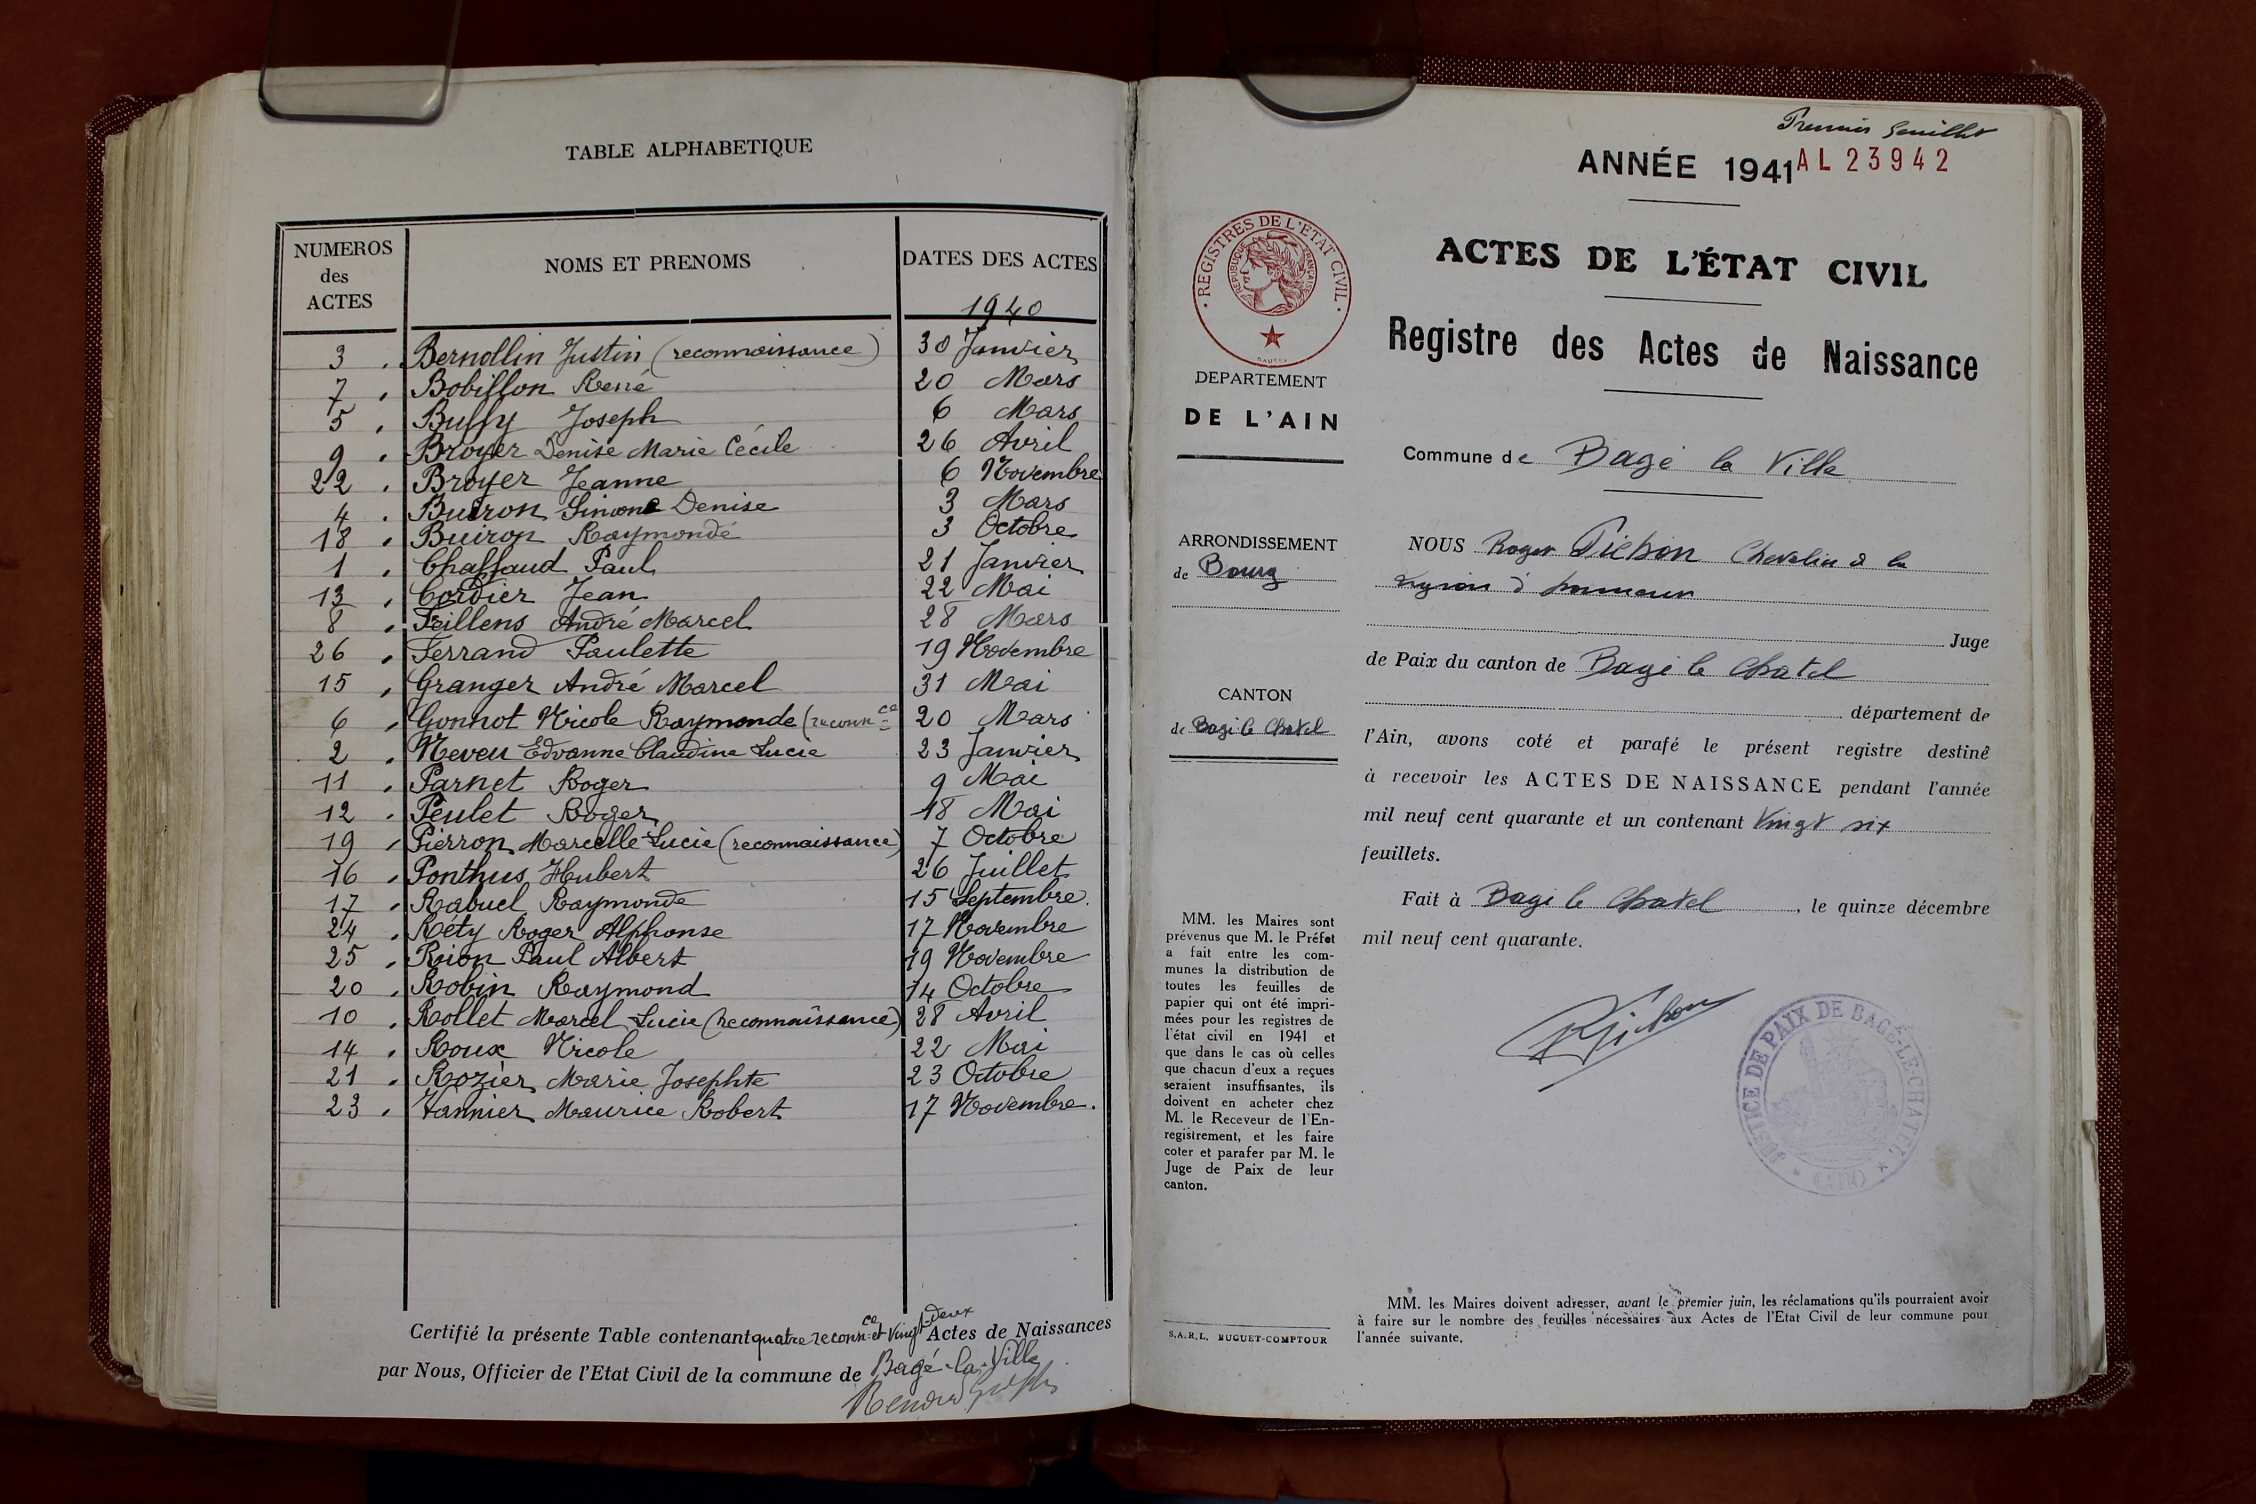 TABLE ALPHABETIQUE
NUMEROS des ACTES
NOMS ET PRENOMS
DATES DES ACTES
1940
3 Bernollin Justin (reconnaissance) 30 Janvier
7 Bobillon René 20 Mars
5 Buffy Joseph 6 Mars
9 Broyer Denise Marie Cécile 26 Avril
22 Broyer Jeanne 6 Novembre
4 Buiron Simone Denise 3 Mars
18 Buiron Raymonde 3 Octobre
1 Chaffaud Paul 21 Janvier
13 Cordier Jean 22 Mai
8 Feillens André Marcel 28 Mars
26 Ferrand Paulette 19 Novembre
15 Granger André Marcel 31 Mai
6 Gonnot Nicole Raymonde (reconnce 20 Mars
2 Neveu Edvanne Claudine Lucie 23 Janvier
11 Parnet Roger 9 Mai
12 Peulet Roger 18 Mai
19 Pierron Marcelle Lucie (reconnaissance) 7 Octobre
16 Ponthus Hubert 26 Juillet
17 Rabuel Raymonde 15 Septembre
24 Réty Roger Alphonse 17 Novembre
25 Rion Paul Albert 19 Novembre
20 Robin Raymond 14 Octobre
10 Rollet Marcel Lucie (reconnaissance) 28 Avril
14 Roux Nicole 22 Mai
21 Rozier Marie Josephte 23 Octobre
23 Vannier Maurice Robert 17 Novembre.
Certifié la présente Table contenant quatre reconnce et vingt-deux Actes de Naissances
par Nous, Officier de l'Etat Civil de la commune de Bagé-la-Ville
Premier feuillet
ANNÉE 1941 AL 23942
ACTES DE L'ÉTAT CIVIL
Registre des Actes de Naissance
· REGISTRES DE L'ETAT CIVIL ·
REPUBLIQUE FRANÇAISE
DEPARTEMENT
DE L'AIN
Commune de Bagé la Ville
ARRONDISSEMENT
de Bourg
NOUS Roger Pichon Chevalier de la
Légion d'honneur
Juge
de Paix du canton de Bagé le Chatel
CANTON
de Bagé le Chatel
département de
l'Ain, avons coté et parafé le présent registre destiné
à recevoir les ACTES DE NAISSANCE pendant l'année
mil neuf cent quarante et un contenant Vingt six
feuillets.
Fait à Bagé le Chatel, le quinze décembre
mil neuf cent quarante.
RPichon
JUSTICE DE PAIX DE BAGÉ-LE-CHATEL
(AIN)
MM. les Maires sont
prévenus que M. le Préfet
a fait entre les com-
munes la distribution de
toutes les feuilles de
papier qui ont été impri-
mées pour les registres de
l'état civil en 1941 et
que dans le cas où celles
que chacun d'eux a reçues
seraient insuffisantes, ils
doivent en acheter chez
M. le Receveur de l'En-
registrement, et les faire
coter et parafer par M. le
Juge de Paix de leur
canton.
S.A.R.L. BUGUET-COMPTOUR
MM. les Maires doivent adresser, avant le premier juin, les réclamations qu'ils pourraient avoir
à faire sur le nombre des feuilles nécessaires aux Actes de l'Etat Civil de leur commune pour
l'année suivante.